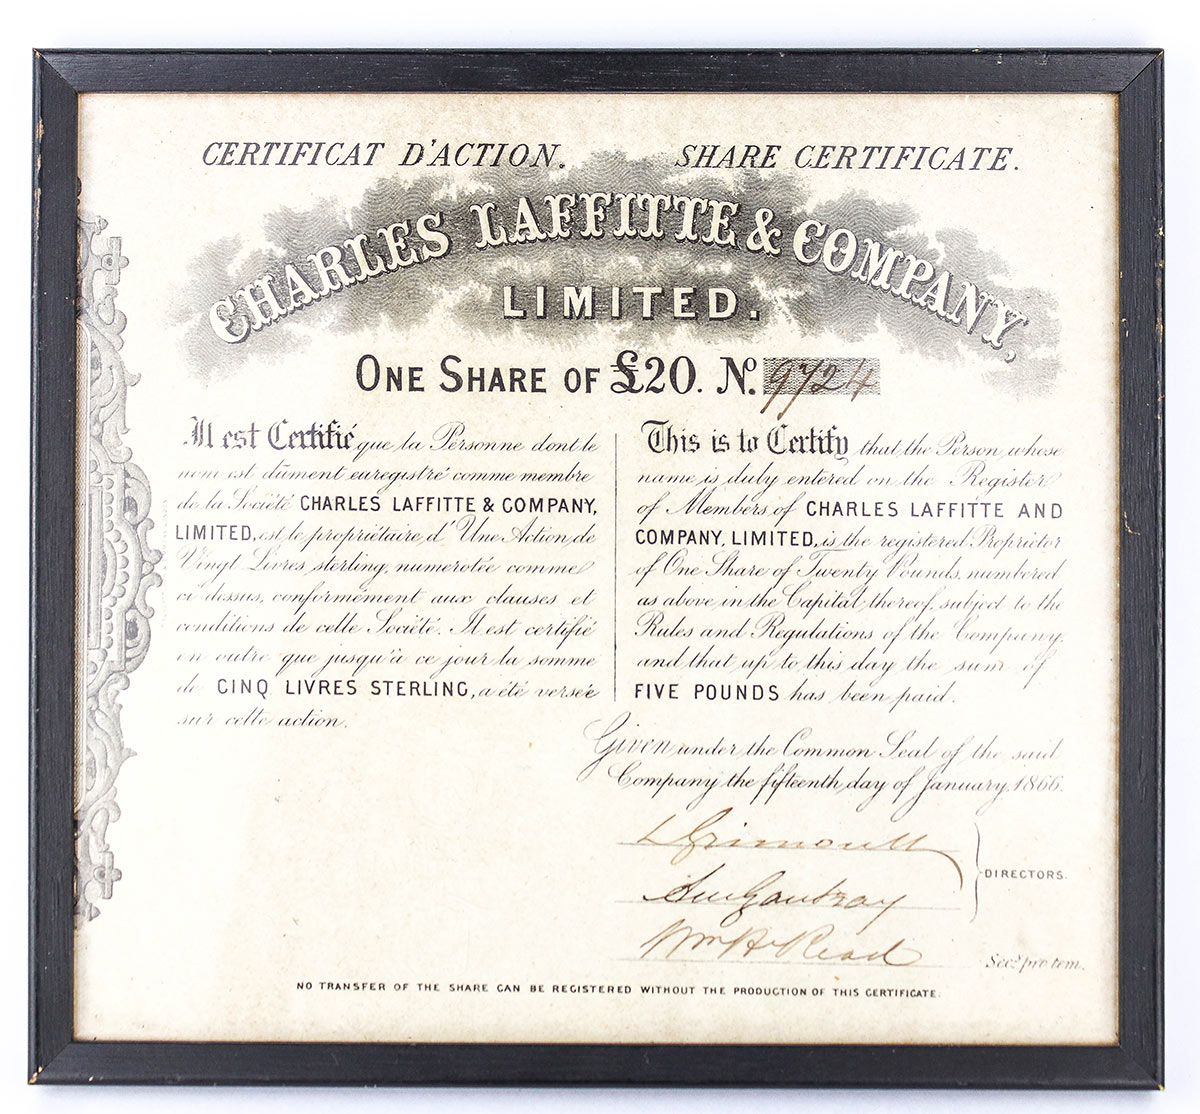 CERTIFICAT D'ACTION. SHARE CERTIFICATE.
CHARLES LAFFITTE & COMPANY,
LIMITED.
ONE SHARE OF £20. No. 9724
Il est Certifié que la Personne dont le
nom est dûment enregistré comme membre
de la Société CHARLES LAFFITTE & COMPANY,
LIMITED, est le propriétaire d'Une Action de
Vingt Livres sterling, numerotée comme
ci dessus, conformément aux clauses et
conditions de cette Société. Il est certifié
en outre que jusqu'à ce jour la somme
de CINQ LIVRES STERLING, a été versée
sur cette action.
This is to Certify that the Person whose
name is duly entered on the Register
of Members of CHARLES LAFFITTE AND
COMPANY, LIMITED, is the registered Proprietor
of One Share of Twenty Pounds, numbered
as above in the Capital thereof, subject to the
Rules and Regulations of the Company,
and that up to this day the sum of
FIVE POUNDS has been paid.
Given under the Common Seal of the said
Company the fifteenth day of January, 1866.
DIRECTORS.
Wm H Read
Secy. pro tem.
NO TRANSFER OF THE SHARE CAN BE REGISTERED WITHOUT THE PRODUCTION OF THIS CERTIFICATE.